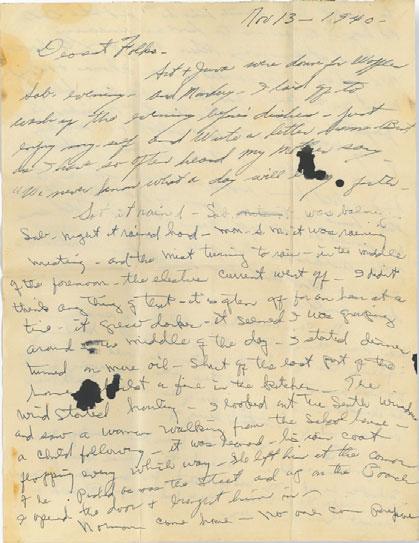 Nov 13 - 1940 -
Dearest Folks -
Art & June were down for Waffles
Sat. evening - and Monday - I had got to
wash up the evening before dishes - just
enjoy my self and write a letter
as I have so often heard my Mother say -
"We never know what a day will bring forth -
So it rained - Sat was balmy -
Sun. night it rained hard - Mon. A.M. it was raining &
misting - and the mist turning to rain - in the middle
of the forenoon - the electric current went off - I didn't
think any thing of that - it's often off for an hour at a
time - it grew darker - it seemed I was groping
around middle of the day - I started dinner
turned on more oil - Shut off the last part of the
house lit a fire in the kitchen - The
Wind started howling - I looked out the South Window
and saw a woman walking from the School house -
a child following - it was - his coat
flopping every which way - She left him at the corner
& he the street and up on the Porch
I opened the door & brought him in -
Norman come home - no one